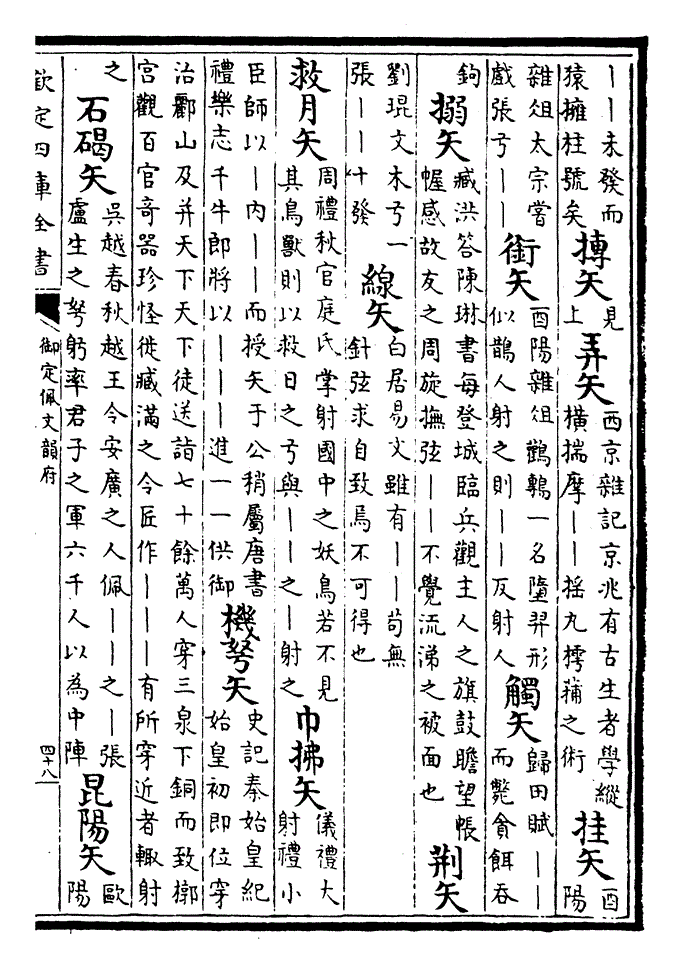 丨丨未發而
猿擁柱號矣
摶矢
見
上
弄矢
西京雜記京兆有古生者學縱
橫揣摩丨丨揺丸樗蒱之術
挂矢
酉
陽
雜俎太宗嘗
戲張弓丨丨
銜矢
酉陽雜俎鸛鶄一名墮羿形
似鵲人射之則丨丨反射人
觸矢
歸田賦丨丨
而斃貪餌吞
鉤
搦矢
臧洪答陳琳書每登城臨兵觀主人之旗鼓瞻望帳
幄感故友之周旋撫弦丨丨不覺流涕之被面也
荆矢
劉琨文木弓一
張丨丨卄發
線矢
白居易文雖有丨丨苟無
針弦求自致焉不可得也
救月矢
周禮秋官庭氏掌射國中之妖鳥若不見
其鳥獸則以救日之弓與丨丨之丨射之
巾拂矢
儀禮大
射禮小
臣師以丨内丨丨而授矢于公稍屬唐書
禮樂志千牛郎將以丨丨丨進一一供御
機弩矢
史記秦始皇紀
始皇初即位穿
治酈山及并天下天下徒送詣七十餘萬人穿三泉下銅而致槨
宮觀百官奇器珍怪徙臧滿之令匠作丨丨丨有所穿近者輒射
之
石碣矢
吳越春秋越王令安廣之人佩丨丨之丨張
盧生之弩躬率君子之軍六千人以為中陣
昆陽矢
歐
陽
欽定四庫全書
御定佩文韻府
四十八